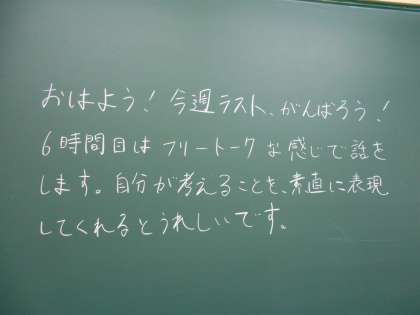 おはよう！今週ラスト、がんばろう！
6時間目はフリートークな感じで話を
します。自分が考えることを、素直に表現
してくれるとうれしいです。